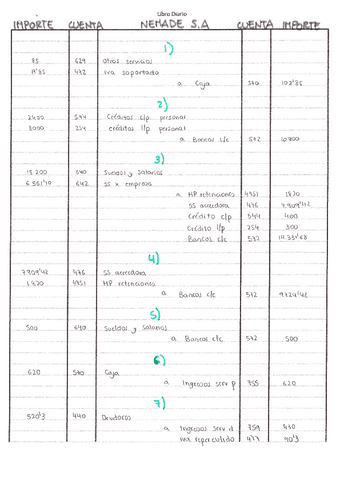 Libro Diario
IMPORTE CUENTA NEMADE S.A CUENTA IMPORTE
1)
85 629 otros servicios
17'85 472 iva soportado
a Caja 570 102'85
2)
2400 544 Créditos c/p personal
254 créditos l/p personal
a Bancos c/c 572
3)
18200 640 Sueldos y salarios
642 SS x empresa
a HP retenciones 4751 1820
SS acreedora 476 7909'42
Crédito c/p 544 400
Crédito l/p 254 300
Bancos c/c 572
4)
7909'42 476 SS acreedora
1820 4751 HP retenciones
a Bancos c/c 572 9729'42
5)
500 640 Sueldos y salarios
a Bancos c/c 572 500
6)
620 570 Caja
a Ingresos serv p 755 620
7)
520'3 440 Deudores
a Ingresos serv d 759 430
iva repercutido 477 90'3